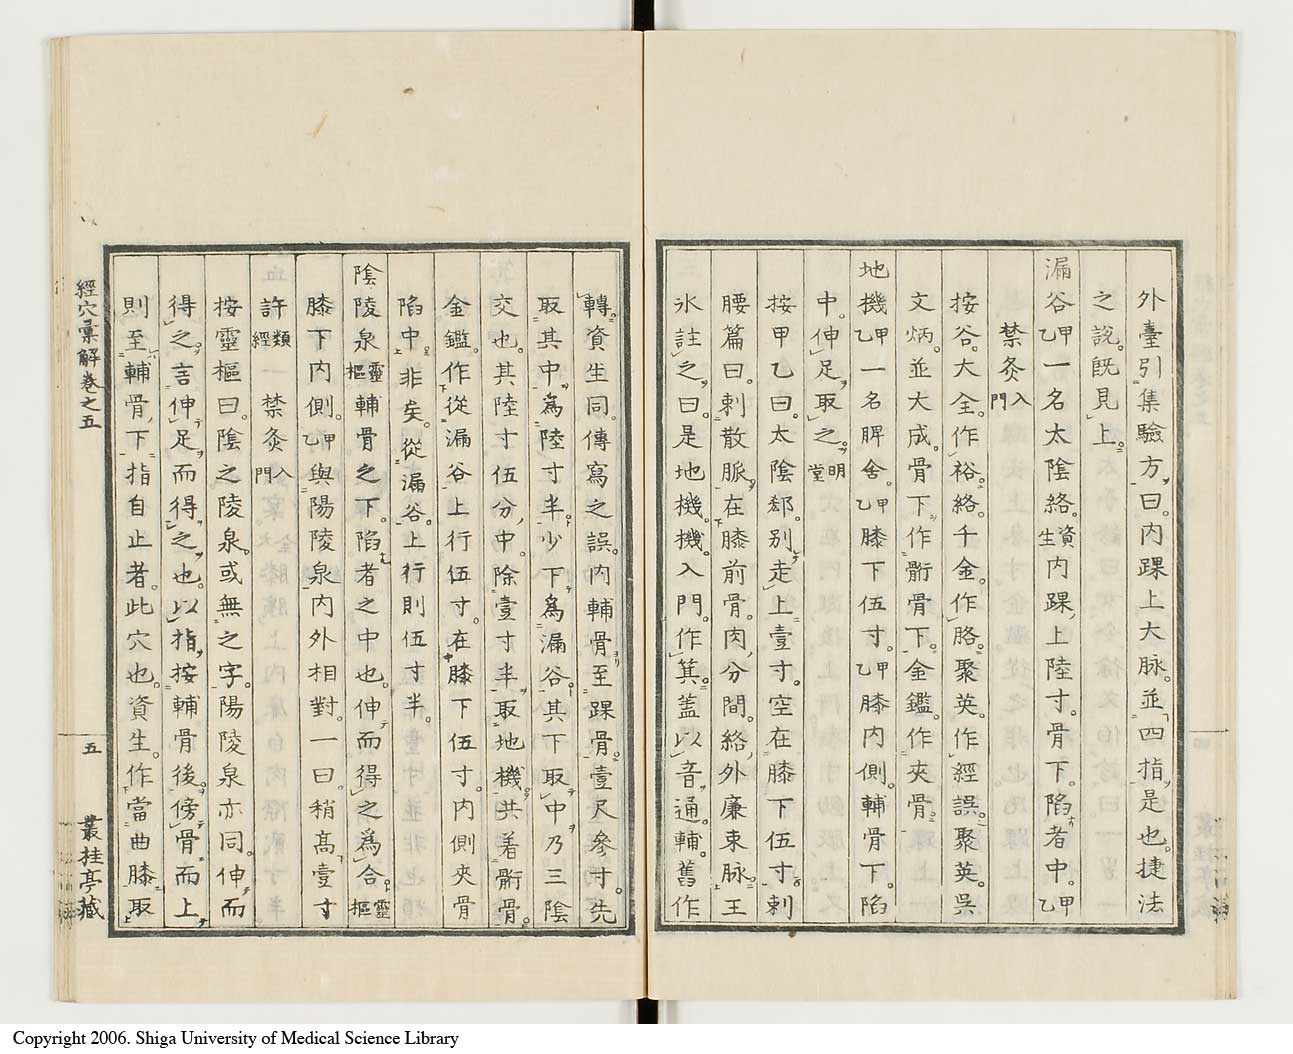 外臺引集驗方曰內踝上大脉並四指是也捷法
之說旣見上
漏谷甲乙一名太陰絡資生內踝上陸寸骨下陷者中甲乙
禁灸入門
按谷大全作裕絡千金作胳聚英作經誤聚英吳
文炳並大成骨下作䯒骨下金鑑作夾骨
地機甲乙一名脾舍甲乙膝下伍寸甲乙膝內側輔骨下陷
中伸足取之明堂
按甲乙曰太陰郄别走上壹寸空在膝下伍寸刺
腰篇曰刺散脈在膝前骨肉分間絡外廉束脉王
氷註之曰是地機機入門作箕蓋以音通輔舊作
轉資生同傳寫之誤內輔骨至踝骨壹尺參寸先
取其中為陸寸半少下為漏谷其下取中乃三陰
交也其陸寸伍分中除壹寸半取地機共着䯒骨
金鑑作從漏谷上行伍寸在膝下伍寸內側夾骨
陷中非矣從漏谷上行則伍寸半
陰陵泉靈樞輔骨之下陷者之中也伸而得之為合靈樞
膝下內側甲乙與陽陵泉內外相對一曰稍高壹寸
許類經一禁灸入門
按靈樞曰陰之陵泉或無之字陽陵泉亦同伸而
得之言伸足而得之也以指按輔骨後傍骨而上
則至輔骨下指自止者此穴也資生作當曲膝取
經穴彙解卷之五
五
叢桂亭藏
Copyright 2006. Shiga University of Medical Science Library